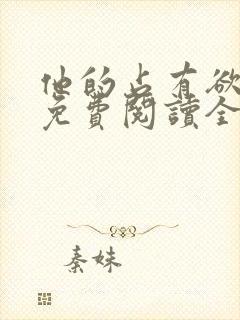 他的占有欲
免費閱讀全
秦妹